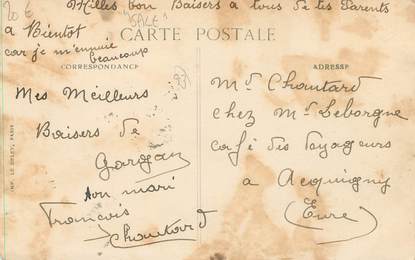 20 €
Milles bon Baisers a tous de tes Parents
"SALE"
a Bientot
car je m'ennuie
beaucoup
CARTE POSTALE
CORRESPONDANCE
ADRESSE
Mes Meilleurs
Baisers de
Gargan
ton mari
François
Choutard
Md Choutard
chez Md Leborgne
café des Voyageurs
a Acquigny
(Eure)
IMP. LE DELEY, PARIS